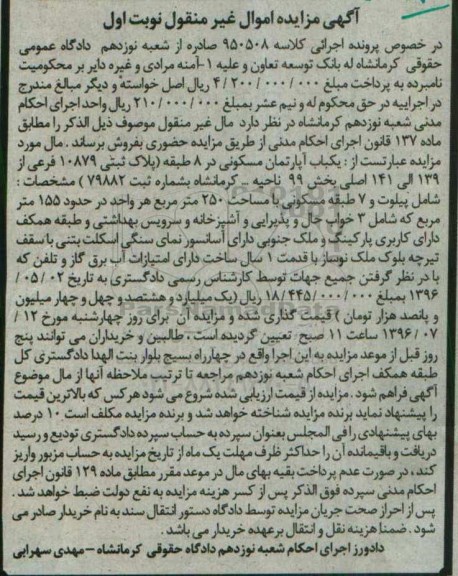 آگهی مزایده اموال غیر منقول نوبت اول
در خصوص پرونده اجرائی کلاسه ۹۵۰۵۰۸ صادره از شعبه نوزدهم دادگاه عمومی
حقوقی کرمانشاه له بانک توسعه تعاون و علیه ۱-آمنه مرادی و غیره دایر بر محکومیت
نامبرده به پرداخت مبلغ ۴/۲۰۰/۰۰۰/۰۰۰ ریال اصل خواسته و دیگر مبالغ مندرج
در اجراییه در حق محکوم له و نیم عشر بمبلغ ۲۱۰/۰۰۰/۰۰۰ ریال واحد اجرای احکام
مدنی شعبه نوزدهم کرمانشاه در نظر دارد مال غیر منقول موصوف ذیل الذکر را مطابق
ماده ۱۳۷ قانون اجرای احکام مدنی از طریق مزایده حضوری بفروش برساند . مال مورد
مزایده عبارتست از : یکباب آپارتمان مسکونی در ۸ طبقه (پلاک ثبتی ۱۰۸۷۹ فرعی از
۱۳۹ الی ۱۴۱ اصلی بخش ۹۹ ناحیه - کرمانشاه بشماره ثبت ۷۹۸۸۲ ) مشخصات :
شامل پیلوت و ۷ طبقه مسکونی با مساحت ۲۵۰ متر مربع هر واحد در حدود ۱۵۵ متر
مربع که شامل ۳ خواب حال و پذیرایی و آشپزخانه و سرویس بهداشتی و طبقه همکف
دارای کاربری پارکینگ و ملک جنوبی دارای آسانسور نمای سنگی اسکلت بتنی با سقف
تیرچه بلوک ملک نوساز با قدمت ۱ سال ساخت دارای امتیازات آب برق گاز و تلفن که
با در نظر گرفتن جمیع جهات توسط کارشناس رسمی دادگستری به تاریخ ۰۲ / ۰۵ /
۱۳۹۶ بمبلغ ۱۸/۴۴۵/۰۰۰/۰۰۰ ریال (یک میلیارد و هشتصد و چهل و چهار میلیون
و پانصد هزار تومان ) قیمت گذاری شده و مزایده آن برای روز چهارشنبه مورخ ۱۲ /
۰۷ / ۱۳۹۶ ساعت ۱۱ صبح تعیین گردیده است . طالبین و خریداران می توانند پنج
روز قبل از موعد مزایده به این اجرا واقع در چهارراه بسیج بلوار بنت الهدا دادگستری کل
طبقه همکف اجرای احکام شعبه نوزدهم مراجعه تا ترتیب ملاحظه آنها از مال موضوع
آگهی فراهم شود . مزایده از قیمت ارزیابی شده شروع می شود هر کس که بالاترین قیمت
را پیشنهاد نماید برنده مزایده شناخته خواهد شد و برنده مزایده مکلف است ۱۰ درصد
بهای پیشنهادی را فی المجلس بعنوان سپرده به حساب سپرده دادگستری تودیع و رسید
دریافت و باقیمانده آن را حداکثر ظرف مهلت یک ماه از تاریخ مزایده به حساب مزبور واریز
کند ، در صورت عدم پرداخت بقیه بهای مال در موعد مقرر مطابق ماده ۱۲۹ قانون اجرای
احکام مدنی سپرده فوق الذکر پس از کسر هزینه مزایده به نفع دولت ضبط خواهد شد .
پس از احراز صحت جریان مزایده توسط دادگاه دستور انتقال سند به نام خریدار صادر می
شود . ضمنا هزینه نقل و انتقال بر عهده خریدار می باشد .
دادورز اجرای احکام شعبه نوزدهم دادگاه حقوقی کرمانشاه – مهدی سهرابی